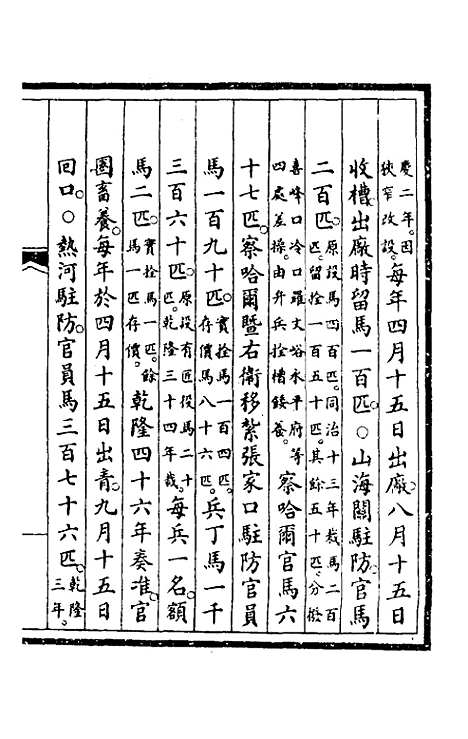 慶二年。因狹窄改設。每年四月十五日出廠。八月十五日
收槽。出廠時留馬一百匹。○山海關駐防。官馬
二百匹。原設馬四百匹。同治十三年裁馬二百匹。留拴一百五十匹。其餘五十匹。分撥
喜峰口冷口羅文峪永平府等四處差操。由弁兵拴槽餧養。察哈爾官馬六
十七匹。察哈爾暨右衛移紮張家口駐防官員
馬一百九十匹。實拴馬一百四匹。存價馬八十六匹。兵丁馬一千
三百六十匹。原設有匠役馬二十匹。乾隆三十四年裁。每兵一名。額
馬二匹。實拴馬一匹。餘馬一匹存價。乾隆四十六年奏准。官
圈畜養。每年於四月十五日出青。九月十五日
回口。○熱河駐防。官員馬三百七十六匹。乾隆三年。